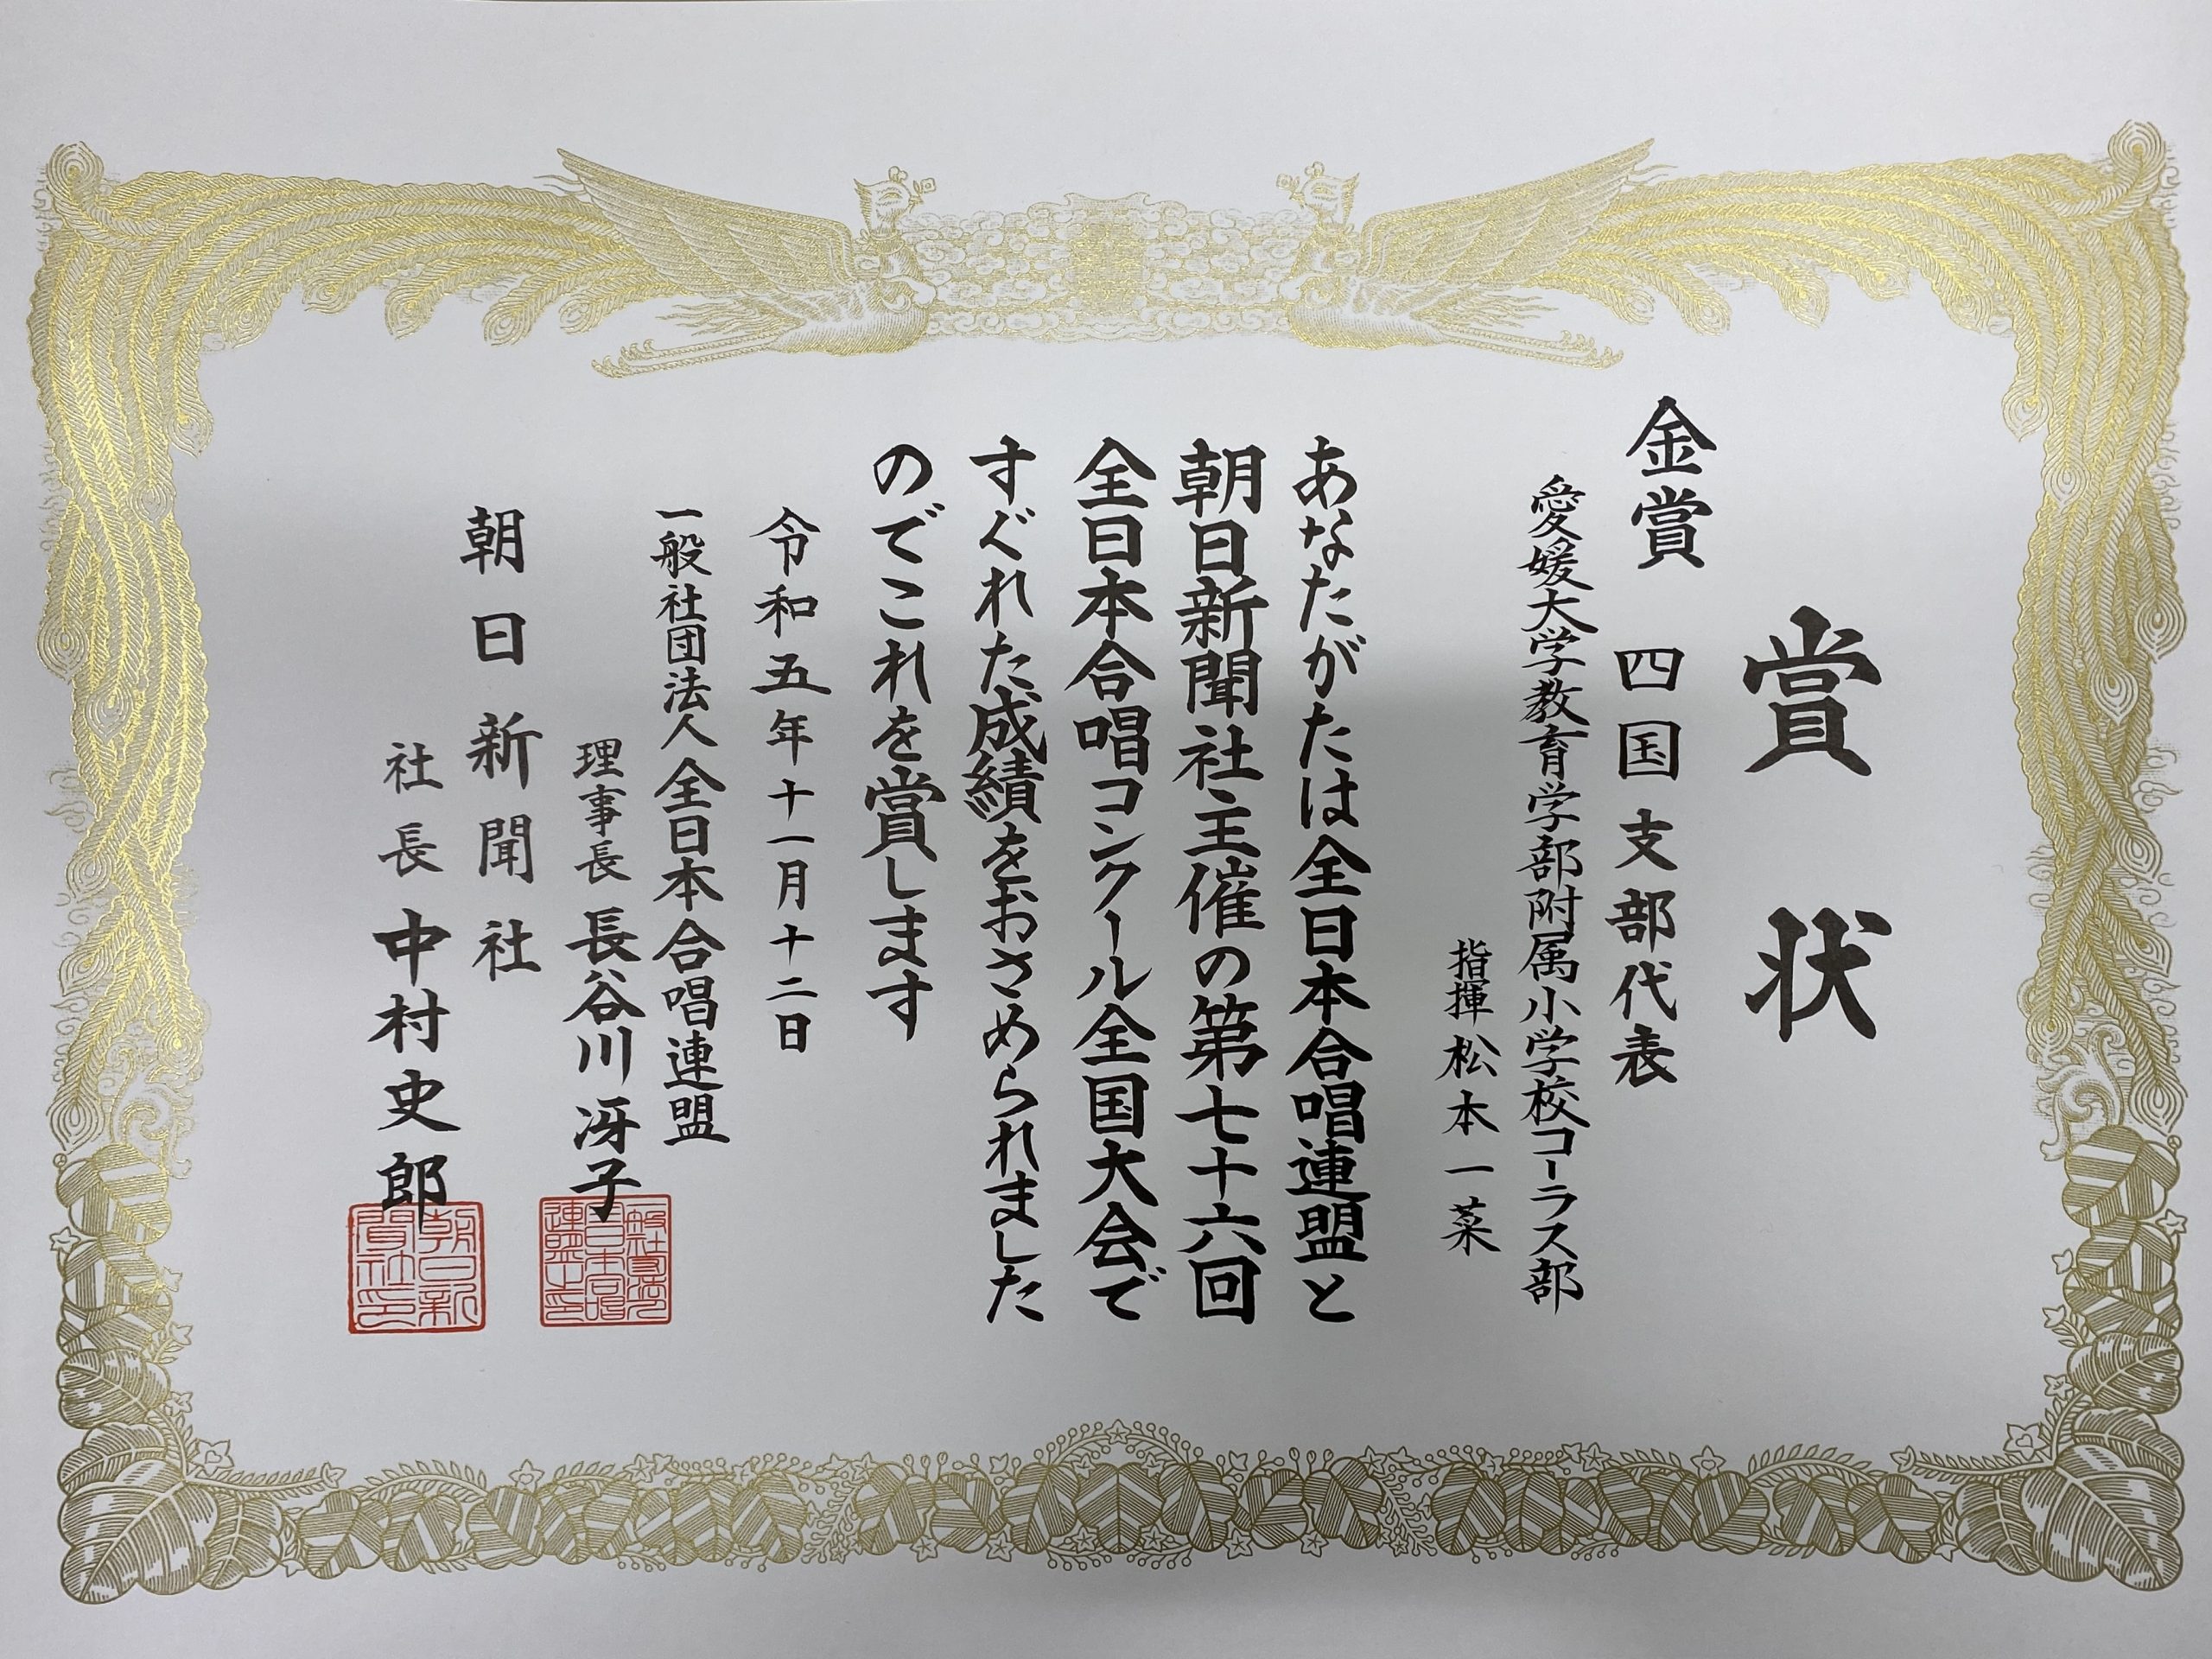 賞状
金賞 四国支部代表
愛媛大学教育学部附属小学校コーラス部
指揮 松本一菜
あなたがたは全日本合唱連盟と
朝日新聞社主催の第七十六回
全日本合唱コンクール全国大会で
すぐれた成績をおさめられました
のでこれを賞します
令和五年十一月十二日
一般社団法人全日本合唱連盟
理事長 長谷川冴子
朝日新聞社
社長 中村史郎
一般社団法人全日本合唱連盟之印
朝日新聞社印